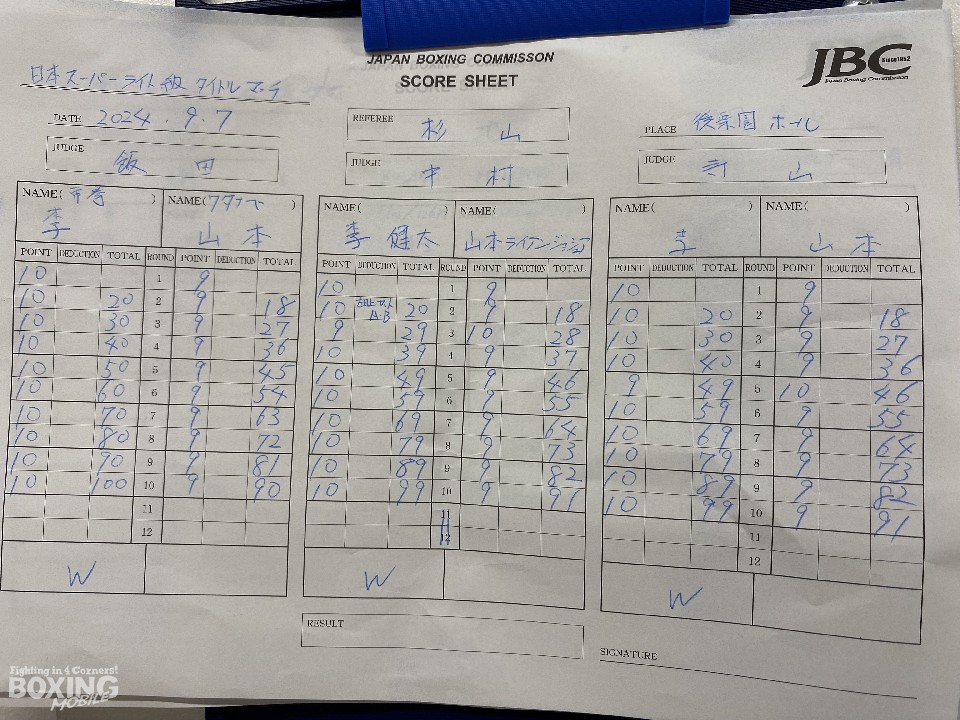 JAPAN BOXING COMMISSON
SCORE SHEET
JBC
Since1952
Japan Boxing Commission
日本スーパーライト級 タイトルマッチ
DATE 2024.9.7
REFEREE 杉山
PLACE 後楽園ホール
JUDGE 飯田
JUDGE 中村
JUDGE
NAME( ) NAME( )
李 山本
POINT DEDUCTION TOTAL ROUND POINT DEDUCTION TOTAL
10 1 9
10 20 2 9 18
10 30 3 9 27
10 40 4 9 36
10 50 5 9 45
10 60 6 9 54
10 70 7 9 63
10 80 8 9 72
10 90 9 9 81
10 100 10 9 90
11
12
W
NAME( ) NAME( )
李 健太 山本ライアンジョシュア
POINT DEDUCTION TOTAL ROUND POINT DEDUCTION TOTAL
10 1 9
10 20 2 9 18
9 29 3 10 28
10 39 4 9 37
10 49 5 9 46
10 59 6 9 55
10 69 7 9 64
10 79 8 9 73
10 89 9 9 82
10 99 10 9 91
11
12
W
NAME( ) NAME( )
李 山本
POINT DEDUCTION TOTAL ROUND POINT DEDUCTION TOTAL
10 1 9
10 20 2 9 18
10 30 3 9 27
10 40 4 9 36
9 49 5 10 46
10 59 6 9 55
10 69 7 9 64
10 79 8 9 73
10 89 9 9 82
10 99 10 9 91
11
12
W
RESULT
SIGNATURE
Fighting in 4 Corners!
BOXING
MOBILE